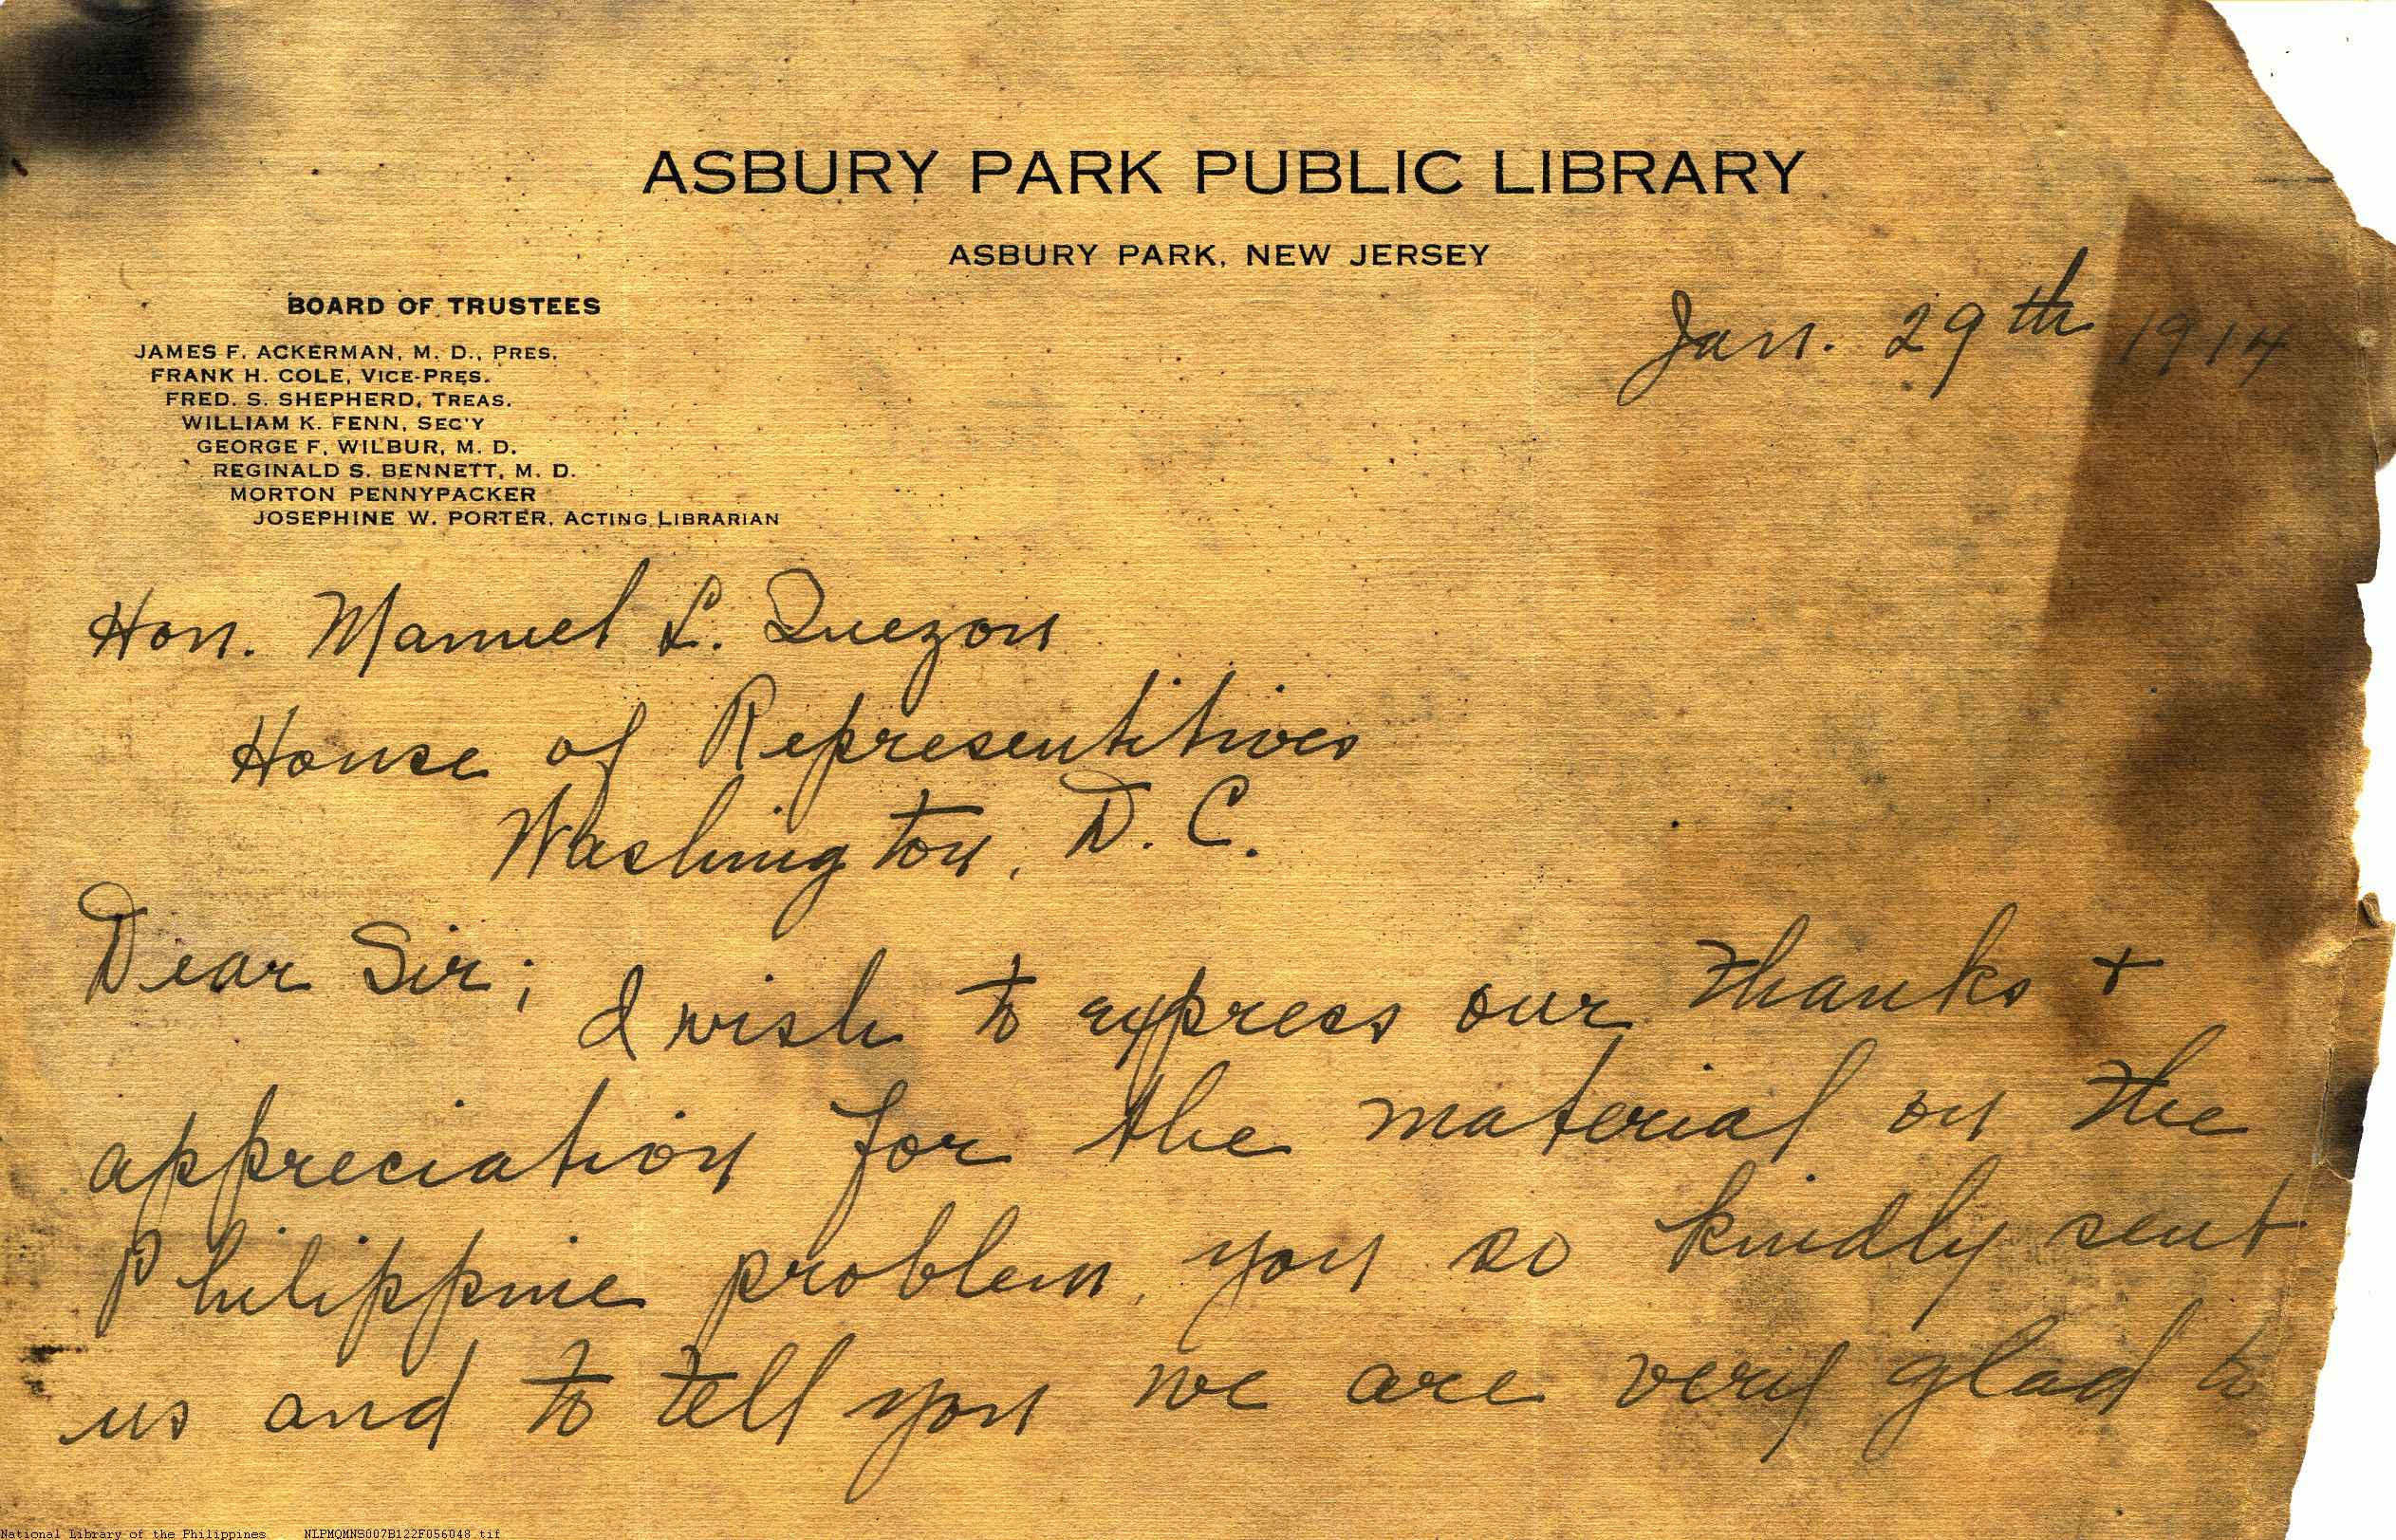 ASBURY PARK PUBLIC LIBRARY
ASBURY PARK, NEW JERSEY
Jan. 29th 1914
BOARD OF TRUSTEES
JAMES F. ACKERMAN, M. D., PRES.
FRANK H. COLE, VICE-PRES.
FRED. S. SHEPHERD, TREAS.
WILLIAM K. FENN, SEC'Y
GEORGE F. WILBUR, M. D.
REGINALD S. BENNETT, M. D.
MORTON PENNYPACKER
JOSEPHINE W. PORTER, ACTING LIBRARIAN
Hon. Manuel L. Quezon
House of Representitives
Washington, D. C.
Dear Sir;
I wish to express our thanks +
appreciation for the material on the
Philippine problem, you so kindly sent
us and to tell you we are very glad to
National Library of the Philippines NLPMQMNS007B122F056048.tif